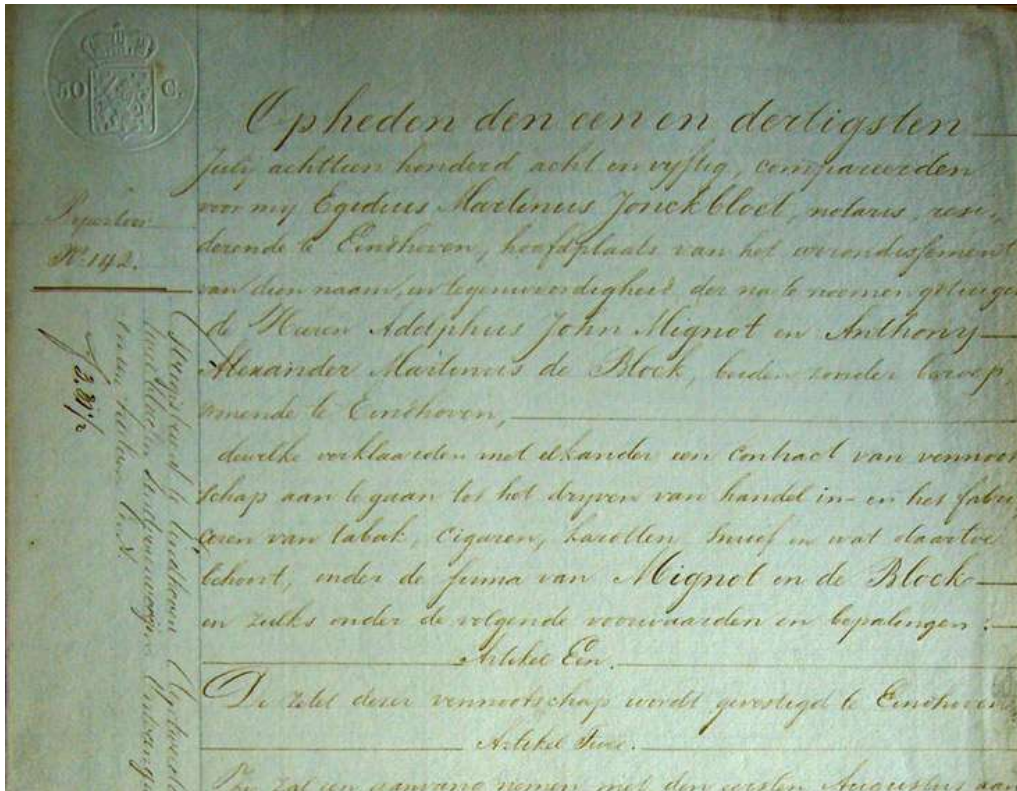 50 C.
Opheden den een en dertigsten
Julij achttien honderd acht en vyftig, compareerden
voor my Egidius Martinus Jonckbloet, notaris, resi,
derende te Eindhoven, hoofdplaats van het arrondissement
van dien naam, in tegenwoordigheid der na te noemen getuigen
de Heeren Adolphus John Mignot en Anthony
Alexander Martinus de Block, beiden zonder beroep,
wonende te Eindhoven,
dewelke verklaarden met elkander een contract van vennoot
schap aan te gaan tot het dryven van handel in- en het fabri,
ceren van tabak, cigaren, karotten, snuif en wat daartoe
behoort, onder de firma van Mignot en de Block
en zulks onder de volgende voorwaarden en bepalingen:
Artikel Een.
De zetel dezer vennootschap wordt gevestigd te Eindhoven
Artikel Twee.
Zy zal een aanvang nemen met den eersten Augustus aan
Repertoire
No. 142.
Geregistreerd te Eindhoven